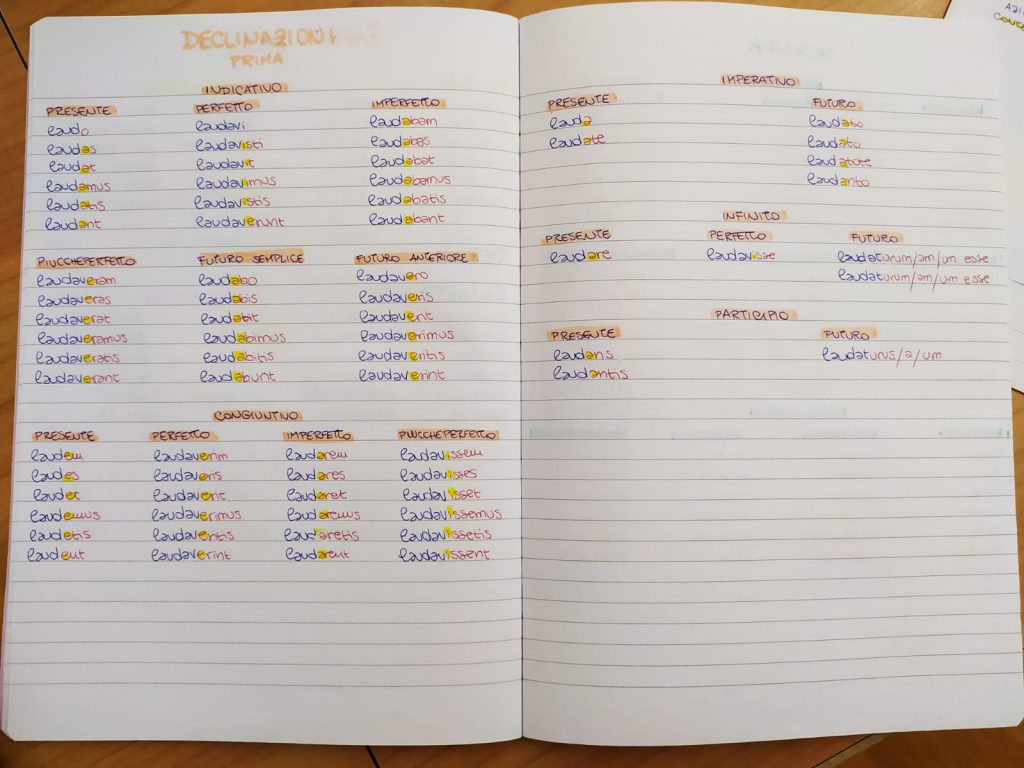 DECLINAZIONI
PRIMA
INDICATIVO
PRESENTE PERFETTO IMPERFETTO
laudo laudavi laudabam
laudas laudavisti laudabas
laudat laudavit laudabat
laudamus laudavimus laudabamus
laudatis laudavistis laudabatis
laudant laudaverunt laudabant
PIUCCHEPERFETTO FUTURO SEMPLICE FUTURO ANTERIORE
laudaveram laudabo laudavero
laudaveras laudabis laudaveris
laudaverat laudabit laudaverit
laudaveramus laudabimus laudaverimus
laudaveratis laudabitis laudaveritis
laudaverant laudabunt laudaverint
CONGIUNTIVO
PRESENTE PERFETTO IMPERFETTO PIUCCHEPERFETTO
laudem laudaverim laudarem laudavissem
laudes laudaveris laudares laudavisses
laudet laudaverit laudaret laudavisset
laudemus laudaverimus laudaremus laudavissemus
laudetis laudaveritis laudaretis laudavissetis
laudent laudaverint laudarent laudavissent
IMPERATIVO
PRESENTE FUTURO
lauda laudato
laudate laudato
laudatote
laudanto
INFINITO
PRESENTE PERFETTO FUTURO
laudare laudavisse laudaturum/am/um esse
laudaturum/am/um esse
PARTICIPIO
PRESENTE FUTURO
laudans laudaturus/a/um
laudantis